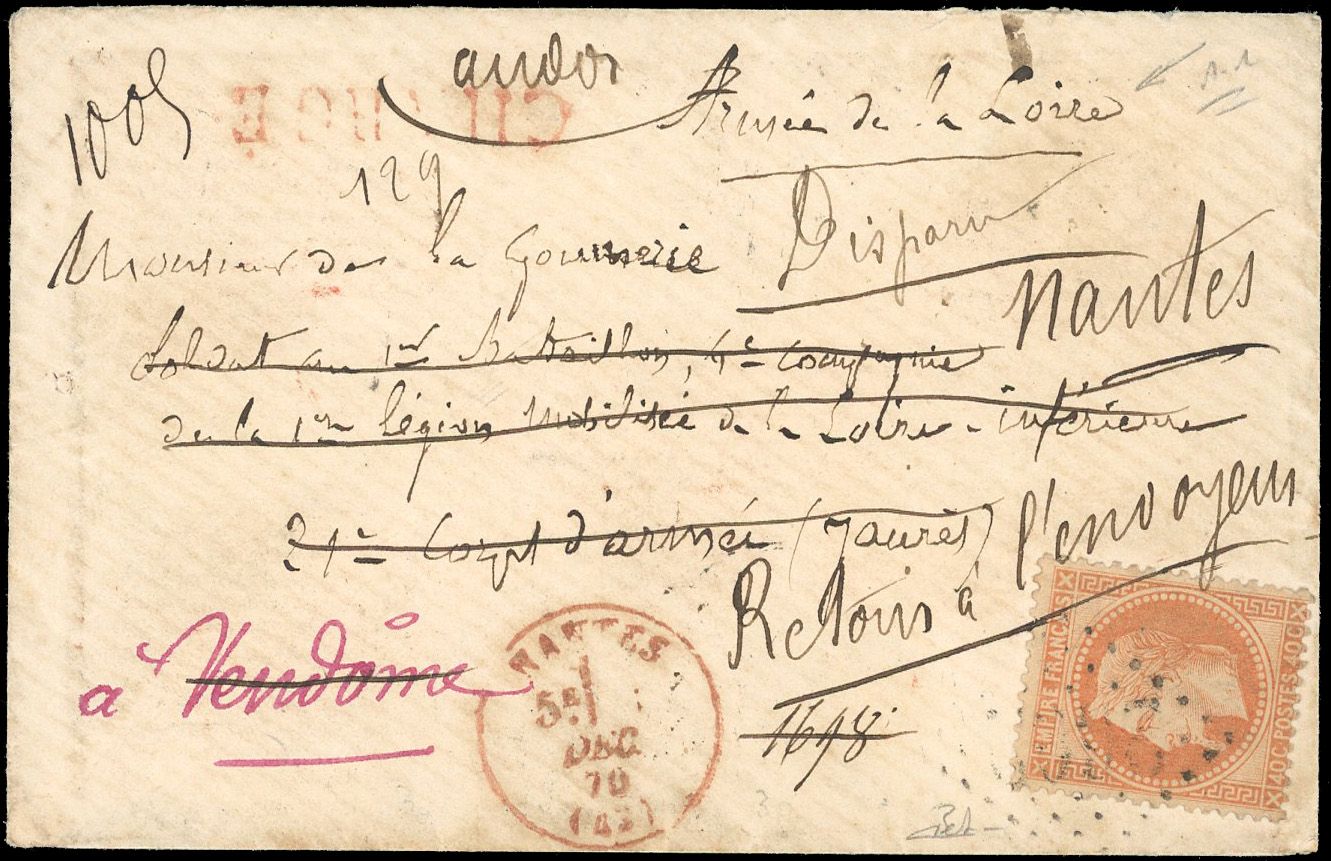 Armée de la Loire
1005
CHARGÉ
129
Disparu
Monsieur de la Gournerie
Nantes
Soldat au 1er Bataillon, 4e compagnie
de la 1re légion mobilisée de la Loire-inférieure
21e Corps d'armée (Jaurès)
Retour à l'envoyeur
à Vendôme
NANTES
5E
DEC
70
(42)
1698
EMPIRE FRANC
40C POSTES 40C